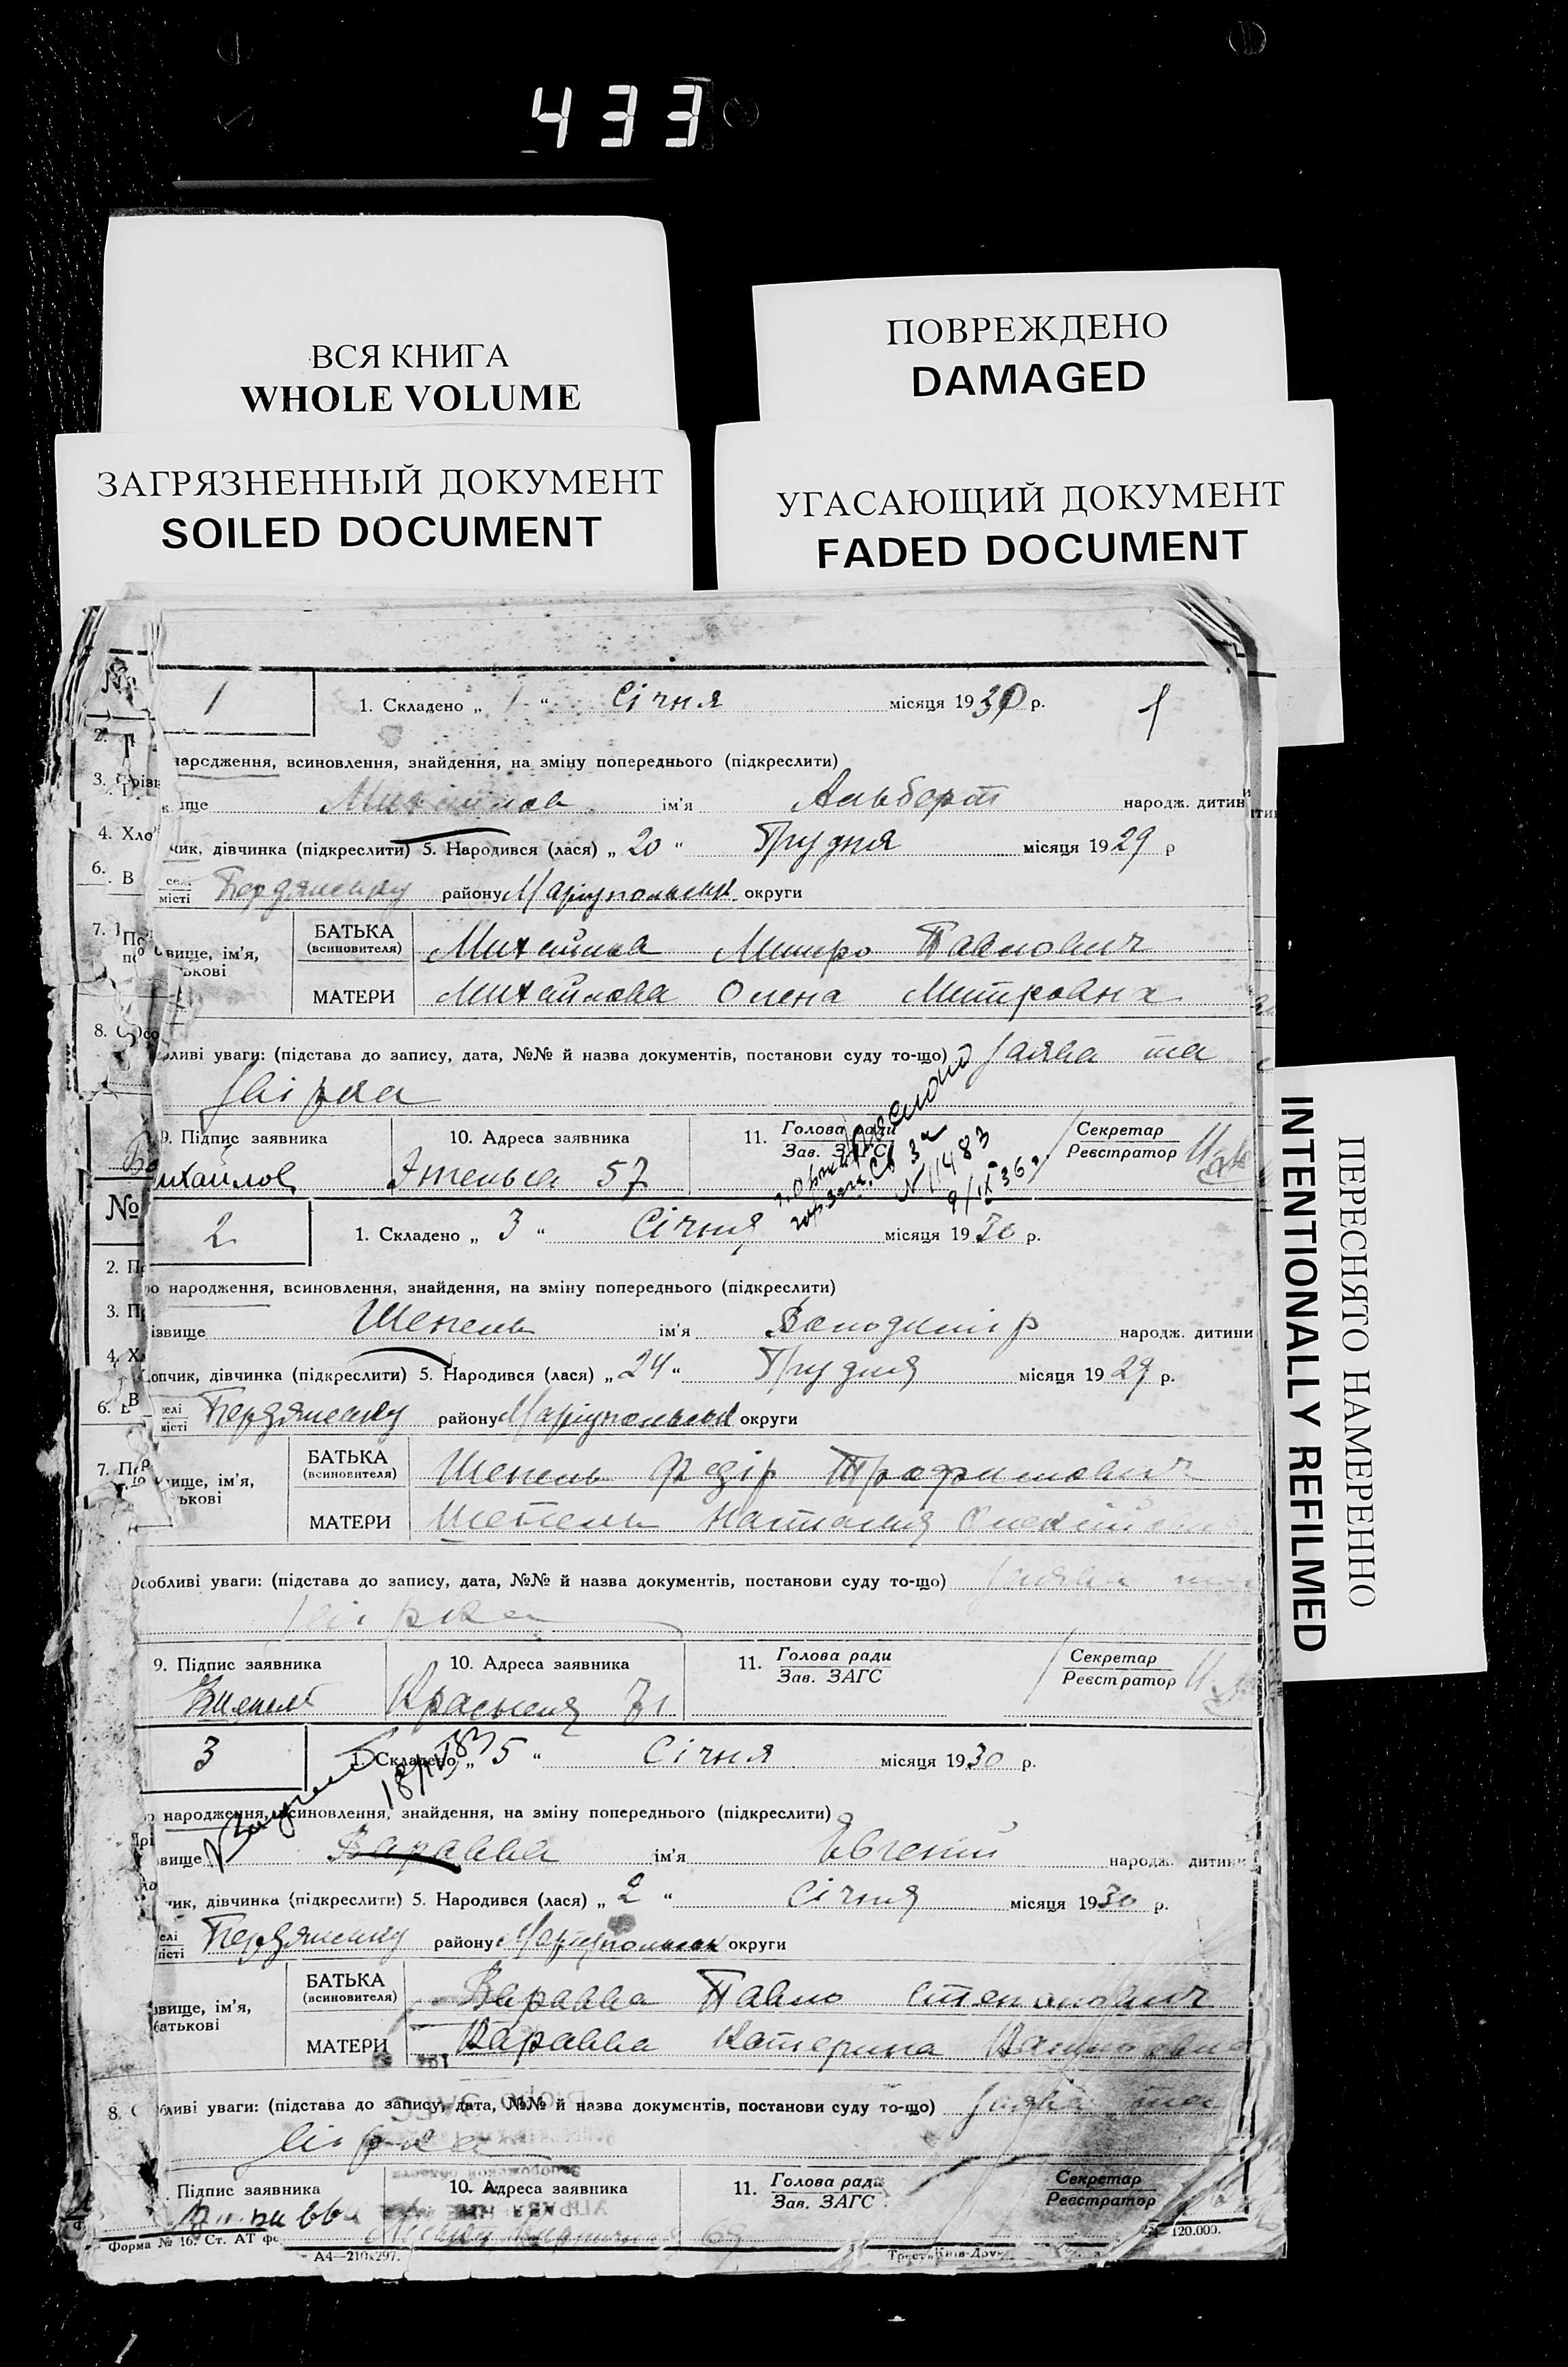 433
ВСЯ КНИГА
WHOLE VOLUME
ПОВРЕЖДЕНО
DAMAGED
ЗАГРЯЗНЕННЫЙ ДОКУМЕНТ
SOILED DOCUMENT
УГАСАЮЩИЙ ДОКУМЕНТ
FADED DOCUMENT
ПЕРЕСНЯТО НАМЕРЕННО
INTENTIONALLY REFILMED
№ 1 1. Складено „ 1 “ Січня місяця 1930 р. 1
народження, всиновлення, знайдення, на зміну попереднього (підкреслити)
Михайлов ім'я Альберт народж. дитини
чик, дівчинка (підкреслити) 5. Народився (лася) „ 20 “ Грудня місяця 1929 р
6. В селі місті Бердянську району Маріупольськ округи
7. вище, ім'я, БАТЬКА (всиновителя) Михайлов Митро Павлович
МАТЕРИ Михайлова Олена Митровна
8. Особливі уваги: (підстава до запису, дата, №№ й назва документів, постанови суду то-що) Заява та
9. Підпис заявника 10. Адреса заявника 11. Голова ради Зав. ЗАГС Секретар Реєстратор
ихайлов Энгельса 57
N 11483
9/IX 36 г
№ 2 1. Складено „ 3 “ Січня місяця 1930 р.
2. Про народження, всиновлення, знайдення, на зміну попереднього (підкреслити)
3. Прізвище Шепель ім'я Володимір народж. дитини
4. Хлопчик, дівчинка (підкреслити) 5. Народився (лася) „ 24 “ Грудня місяця 1929 р.
6. В селі місті Бердянську району Маріупольськ округи
7. вище, ім'я, БАТЬКА (всиновителя) Шепель Федір Трофимович
МАТЕРИ Шепель Наталия
Особливі уваги: (підстава до запису, дата, №№ й назва документів, постанови суду то-що) Заява та
9. Підпис заявника 10. Адреса заявника 11. Голова ради Зав. ЗАГС Секретар Реєстратор
Красная 71
3 1. Складено „ 5 “ Січня місяця 1930 р.
народження, всиновлення, знайдення, на зміну попереднього (підкреслити)
вище Варавва ім'я Євгеній народж. дитини
чик, дівчинка (підкреслити) 5. Народився (лася) „ 2 “ Січня місяця 1930 р.
Бердянську району Маріупольськ округи
вище, ім'я, батькові БАТЬКА (всиновителя) Варавва Павло Степанович
МАТЕРИ Варавва Катерина
8. Особливі уваги: (підстава до запису, дата, №№ й назва документів, постанови суду то-що) Заява та
Підпис заявника 10. Адреса заявника 11. Голова ради Зав. ЗАГС Секретар Реєстратор
Форма № 16. Ст. АТ А4—210x297. 120.000.